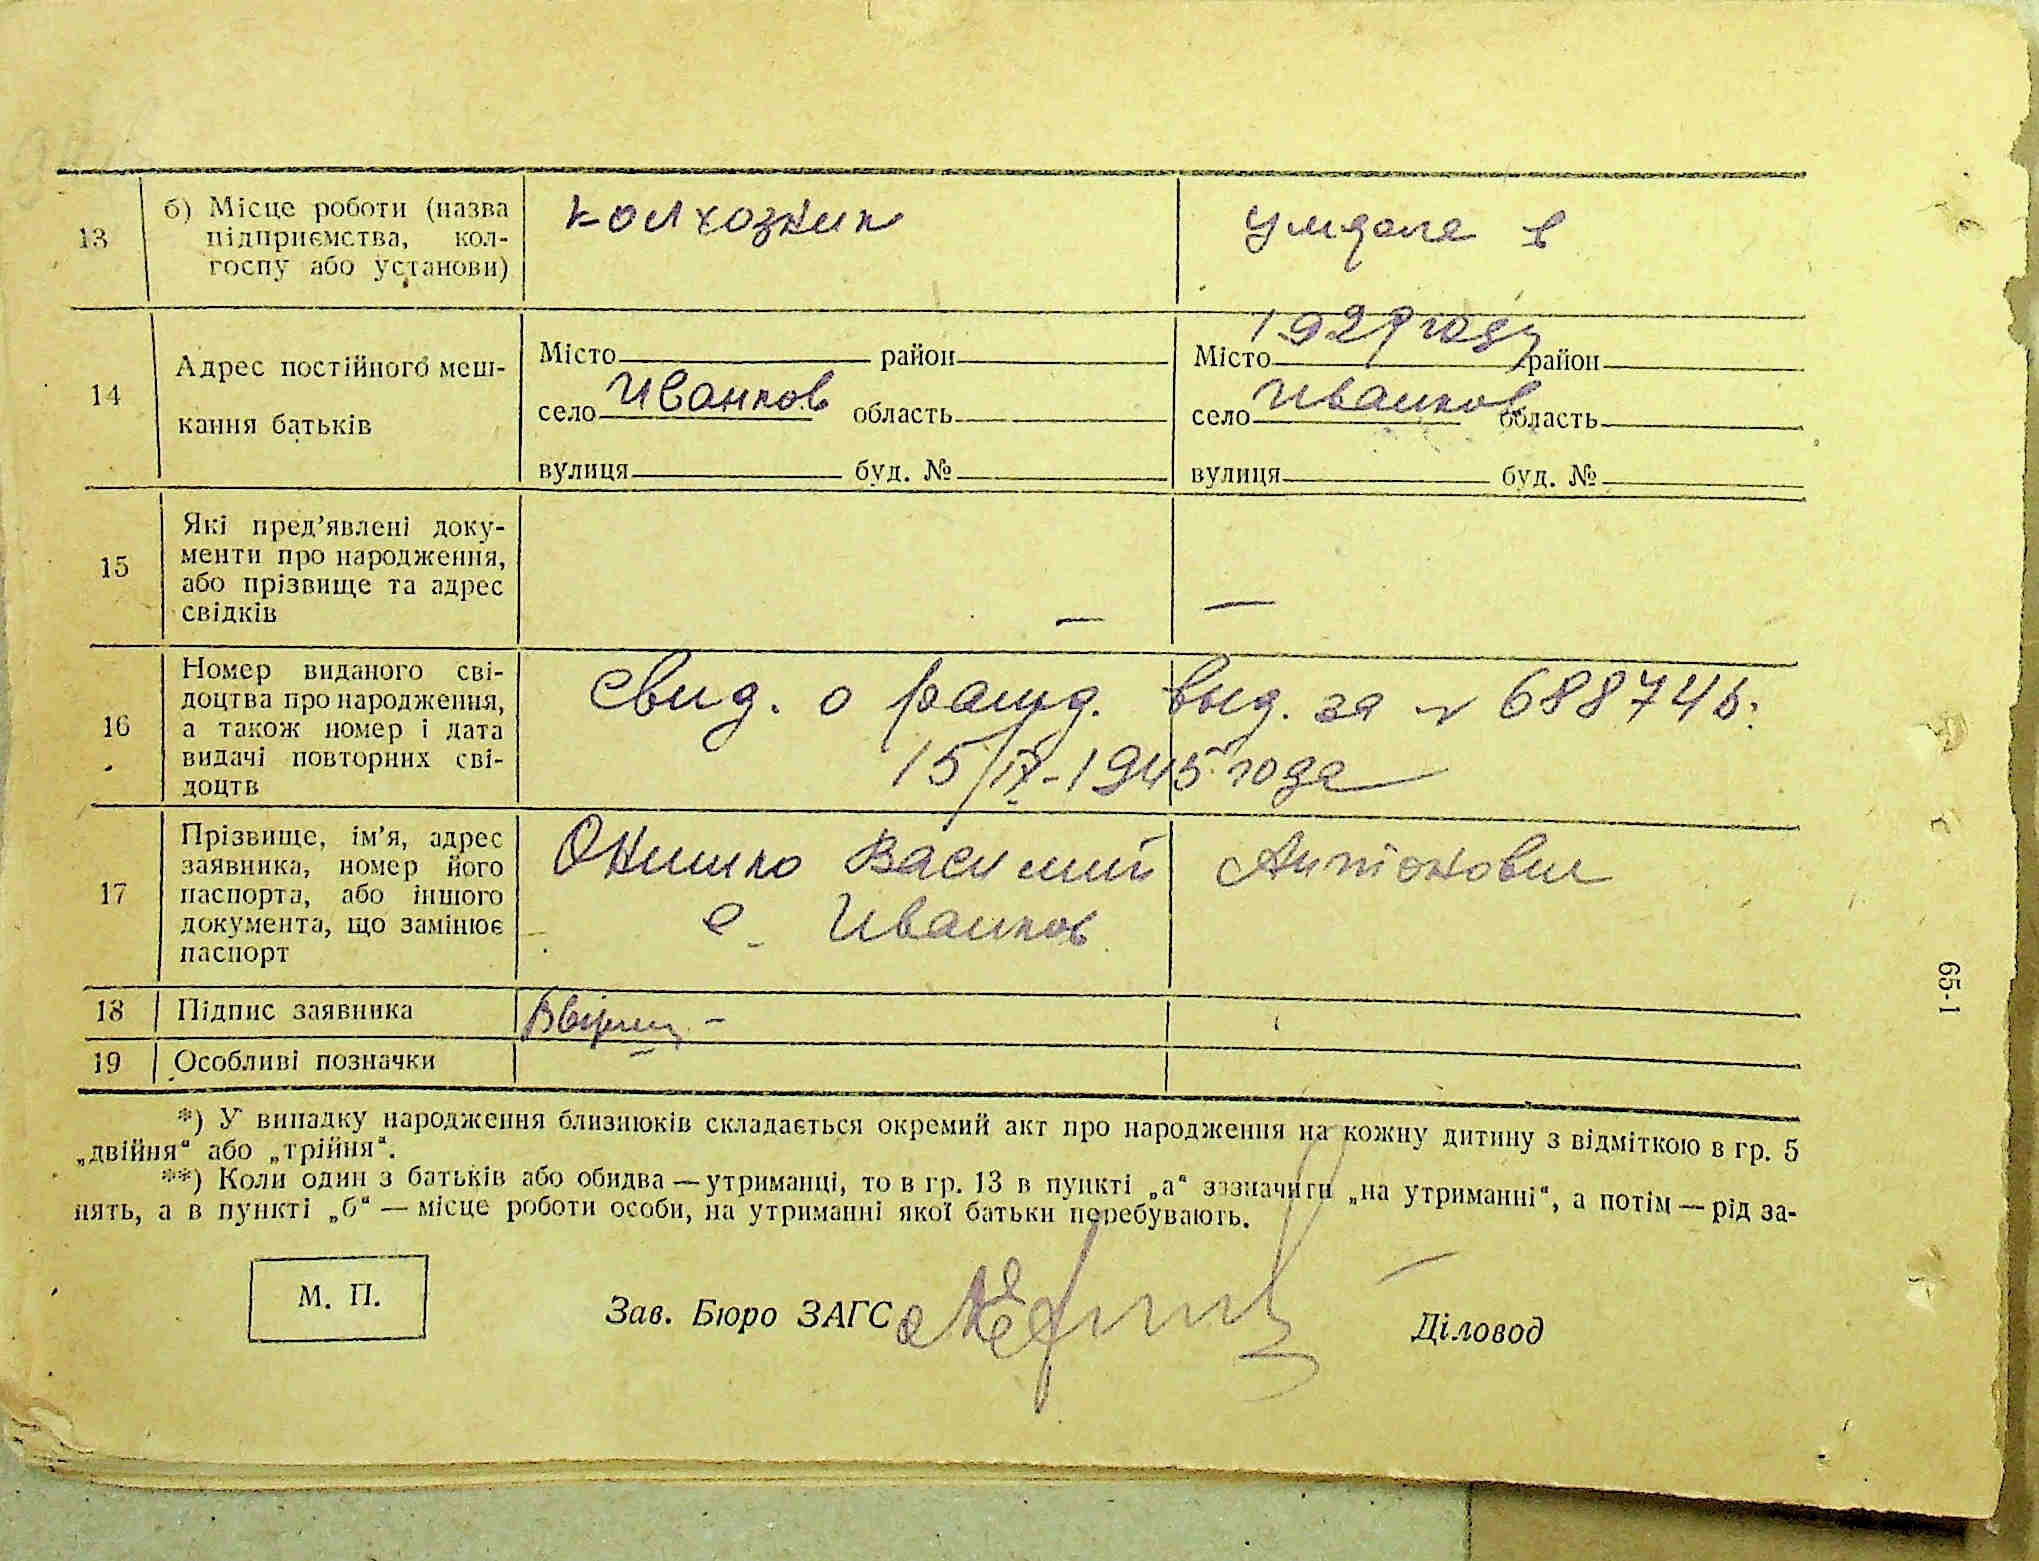 13
б) Місце роботи (назва
підприємства, кол-
госпу або установи)
колхозник
умерла в
1929 году
14
Адрес постійного меш-
кання батьків
Місто район
село Иванков область
вулиця буд. №
Місто район
село Иванков область
вулиця буд. №
15
Які пред’явлені доку-
менти про народження,
або прізвище та адрес
свідків
— —
16
Номер виданого сві-
доцтва про народження,
а також номер і дата
видачі повторних сві-
доцтв
свид. о рожд. выд. за №
15/IX-1945 года
17
Прізвище, ім’я, адрес
заявника, номер його
паспорта, або іншого
документа, що замінює
паспорт
Онишко Василий Антонович
с. Иванков
18
Підпис заявника
19
Особливі позначки
*) У випадку народження близнюків складається окремий акт про народження на кожну дитину з відміткою в гр. 5
„двійня“ або „трійня“.
**) Коли один з батьків або обидва — утриманці, то в гр. 13 в пункті „а“ зазначити „на утриманні“, а потім — рід за-
нять, а в пункті „б“ — місце роботи особи, на утриманні якої батьки перебувають.
М. П.
Зав. Бюро ЗАГС
Діловод
65-1